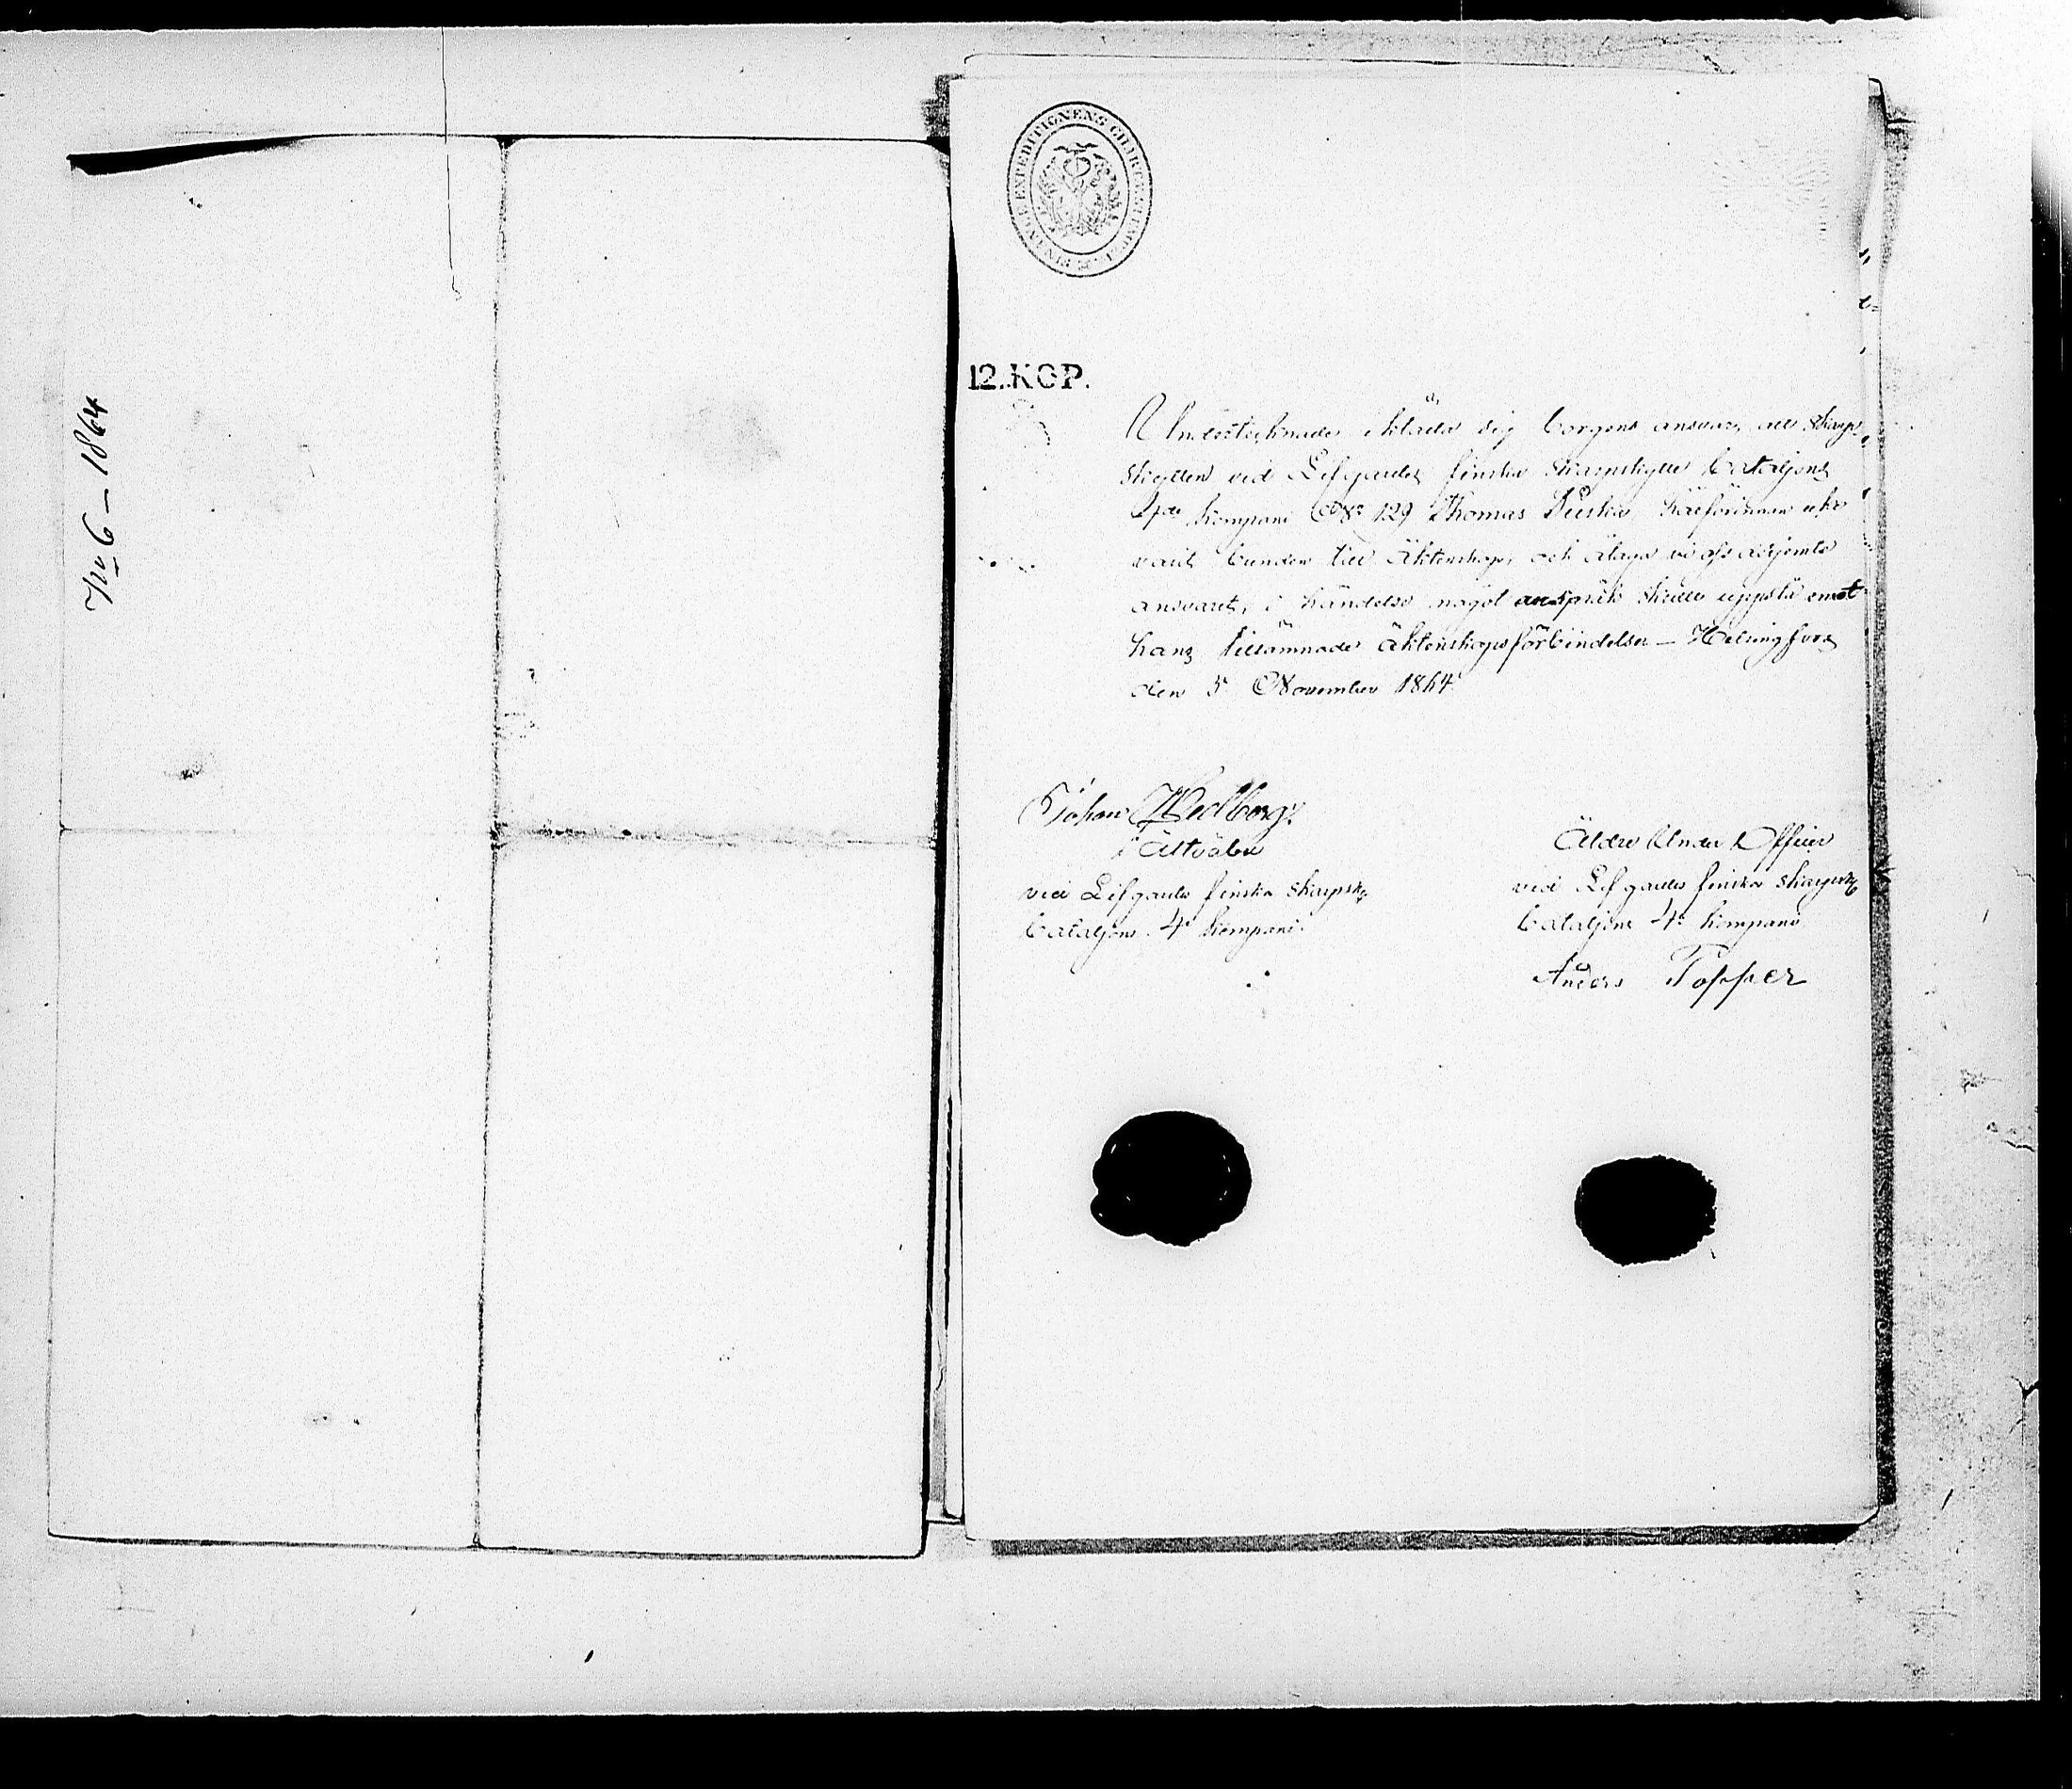 No 6 – 1864
FINANCE EXPEDITIONENS CHARTÆ
12. KOP.
Undertecknade ikläda sig borgens ansvar, att Skarp-
skytten vid Lifgardets finska Skarpskytte bataljons
kompani No 129 Thomas härförinnan icke
varit bunden till äktenskap, och åtaga vi ofs desjemte
ansvaret, i händelse något anspråk skulle uppstå emot
hans tillämnade äktenskapsförbindelse – Helsingfors
den 5 November 1864
Johan Hedberg
Fältväbel
vid Lifgardes finska Skarpsk
bataljons 4e kompani.
Äldre Under Officer
vid Lifgardes finska Skarpsk
bataljons 4e kompani
Anders Topper